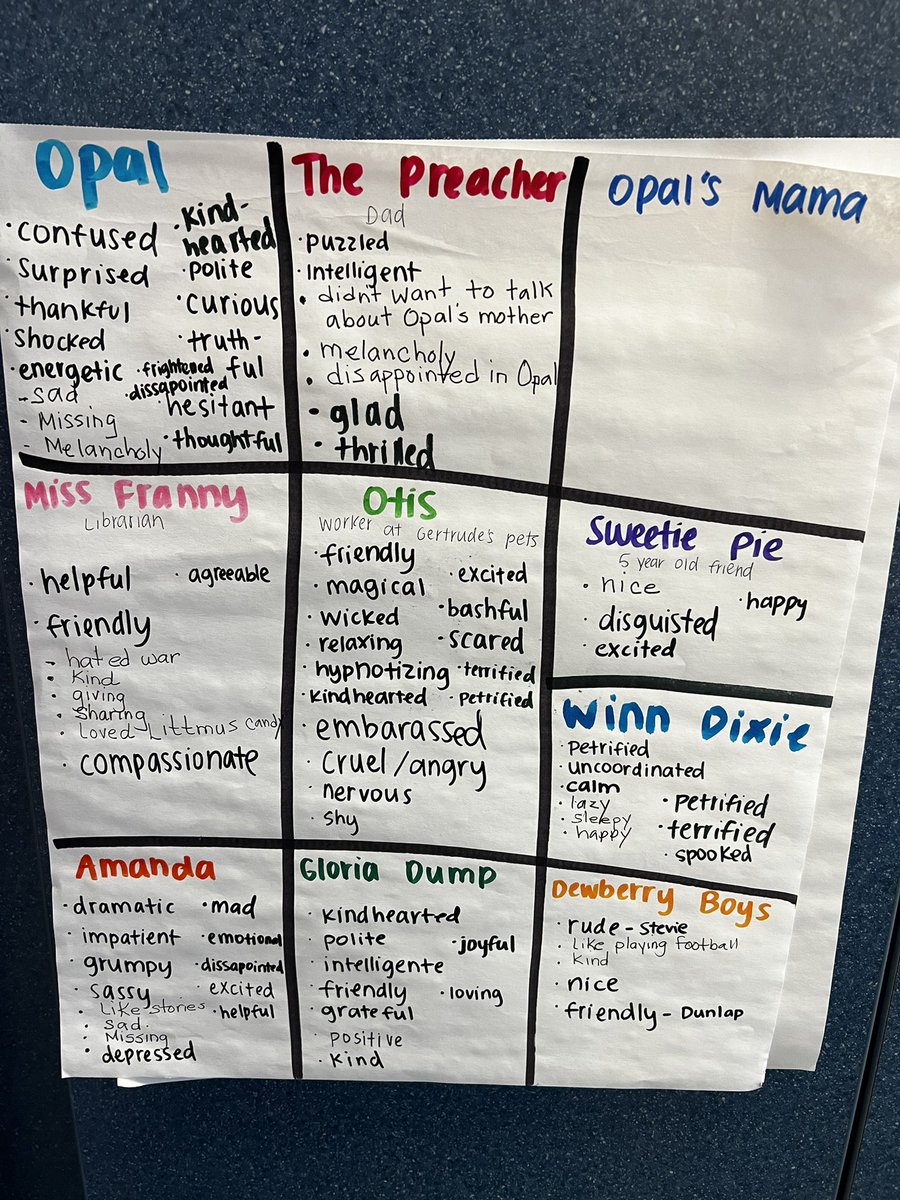 Opal
· confused
· surprised
· thankful
· shocked
· energetic
- sad
- Missing
- Melancholy
· kind-
hearted
· polite
· curious
· truth-
ful
· frightened
· dissapointed
· hesitant
· thoughtful
The Preacher
Dad
· puzzled
· intelligent
· didn't want to talk
about Opal's mother
· melancholy
· disappointed in Opal
· glad
· thrilled
Opal's Mama
Miss Franny
Librarian
· helpful
· agreeable
· friendly
- hated war
· Kind
· giving
· Sharing
· Loved Littmus Candy
· compassionate
Otis
Worker at Gertrude's pets
· friendly
· magical
· wicked
· relaxing
· hypnotizing
· kindhearted
· embarassed
· cruel/angry
· nervous
· shy
· excited
· bashful
· scared
· terrified
· petrified
Sweetie Pie
5 year old friend
· nice
· happy
· disguisted
· excited
Winn Dixie
· petrified
· uncoordinated
· calm
· lazy
· sleepy
· happy
· petrified
· terrified
· spooked
Amanda
· dramatic
· impatient
· grumpy
· sassy
· Like stories
· sad.
· Missing
· depressed
· mad
· emotional
· dissapointed
· excited
· helpful
Gloria Dump
· kindhearted
· polite
· joyful
· intelligente
· friendly
· loving
· grateful
· positive
· kind
Dewberry Boys
· rude - Stevie
· Like playing football
· kind
· nice
· friendly - Dunlap